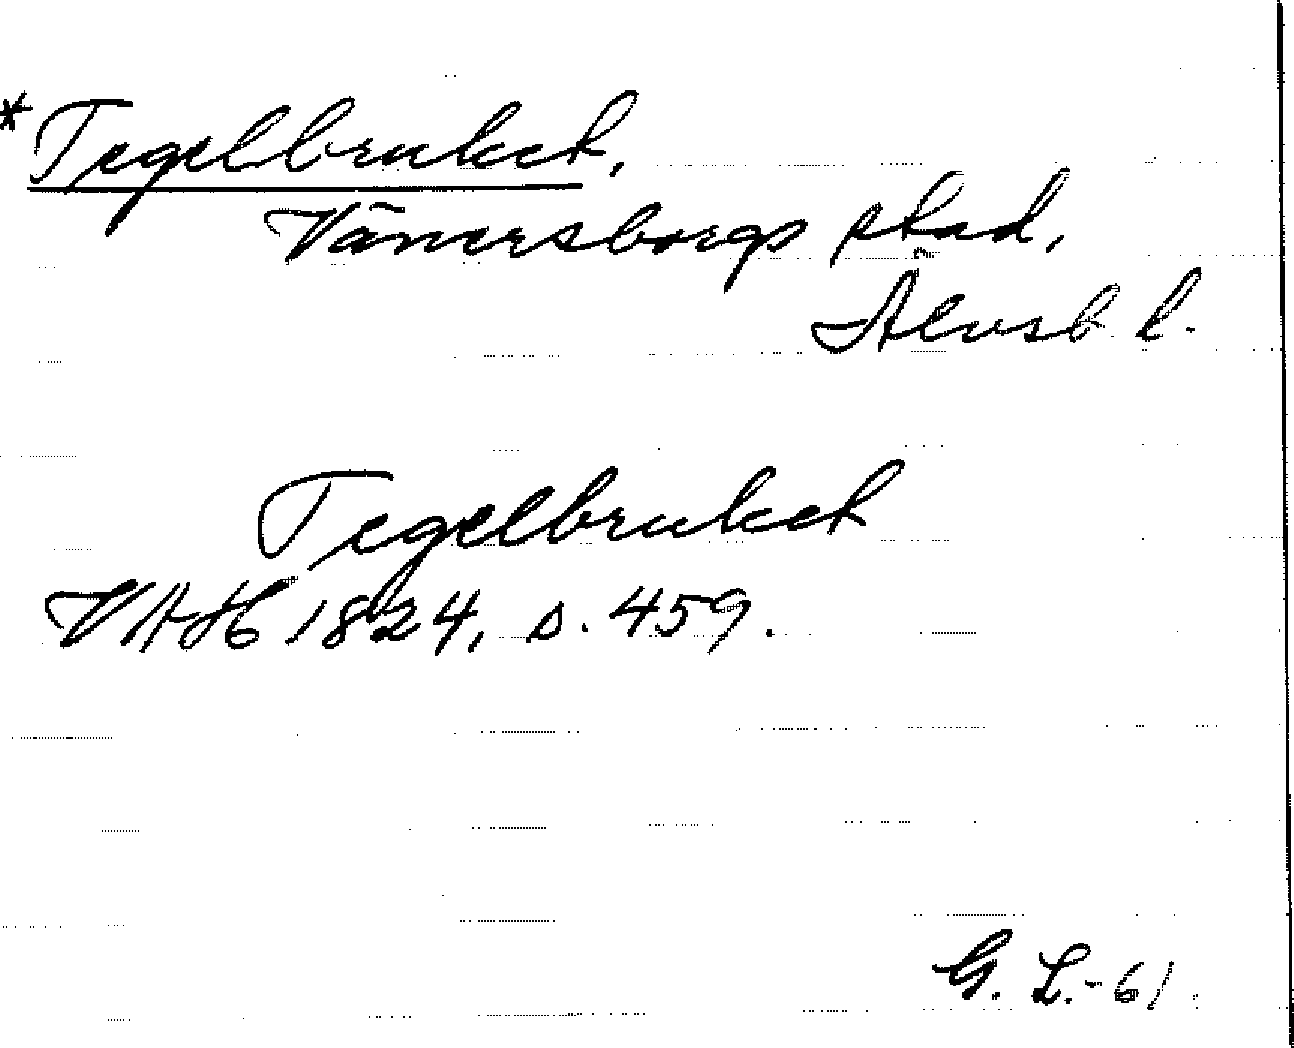 *Tegelbruket,
Vänersborgs stad,
Älvsb. l.
Tegelbruket
VAH 1824, s. 459.
G. L.-61